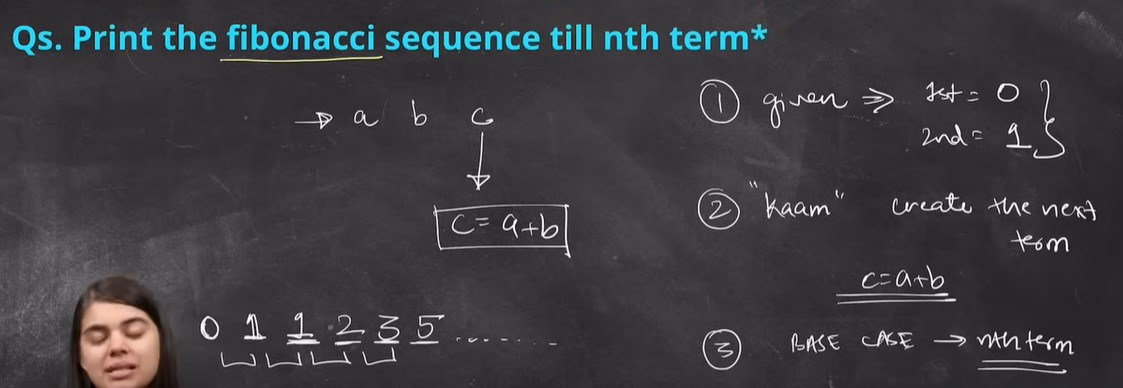 Qs. Print the fibonacci sequence till nth term*
→ a b c
c = a+b
0 1 1 2 3 5 .......
① given ⇒ 1st = 0
2nd = 1
② "Kaam" create the next
term
c=a+b
③ BASE CASE → nth term